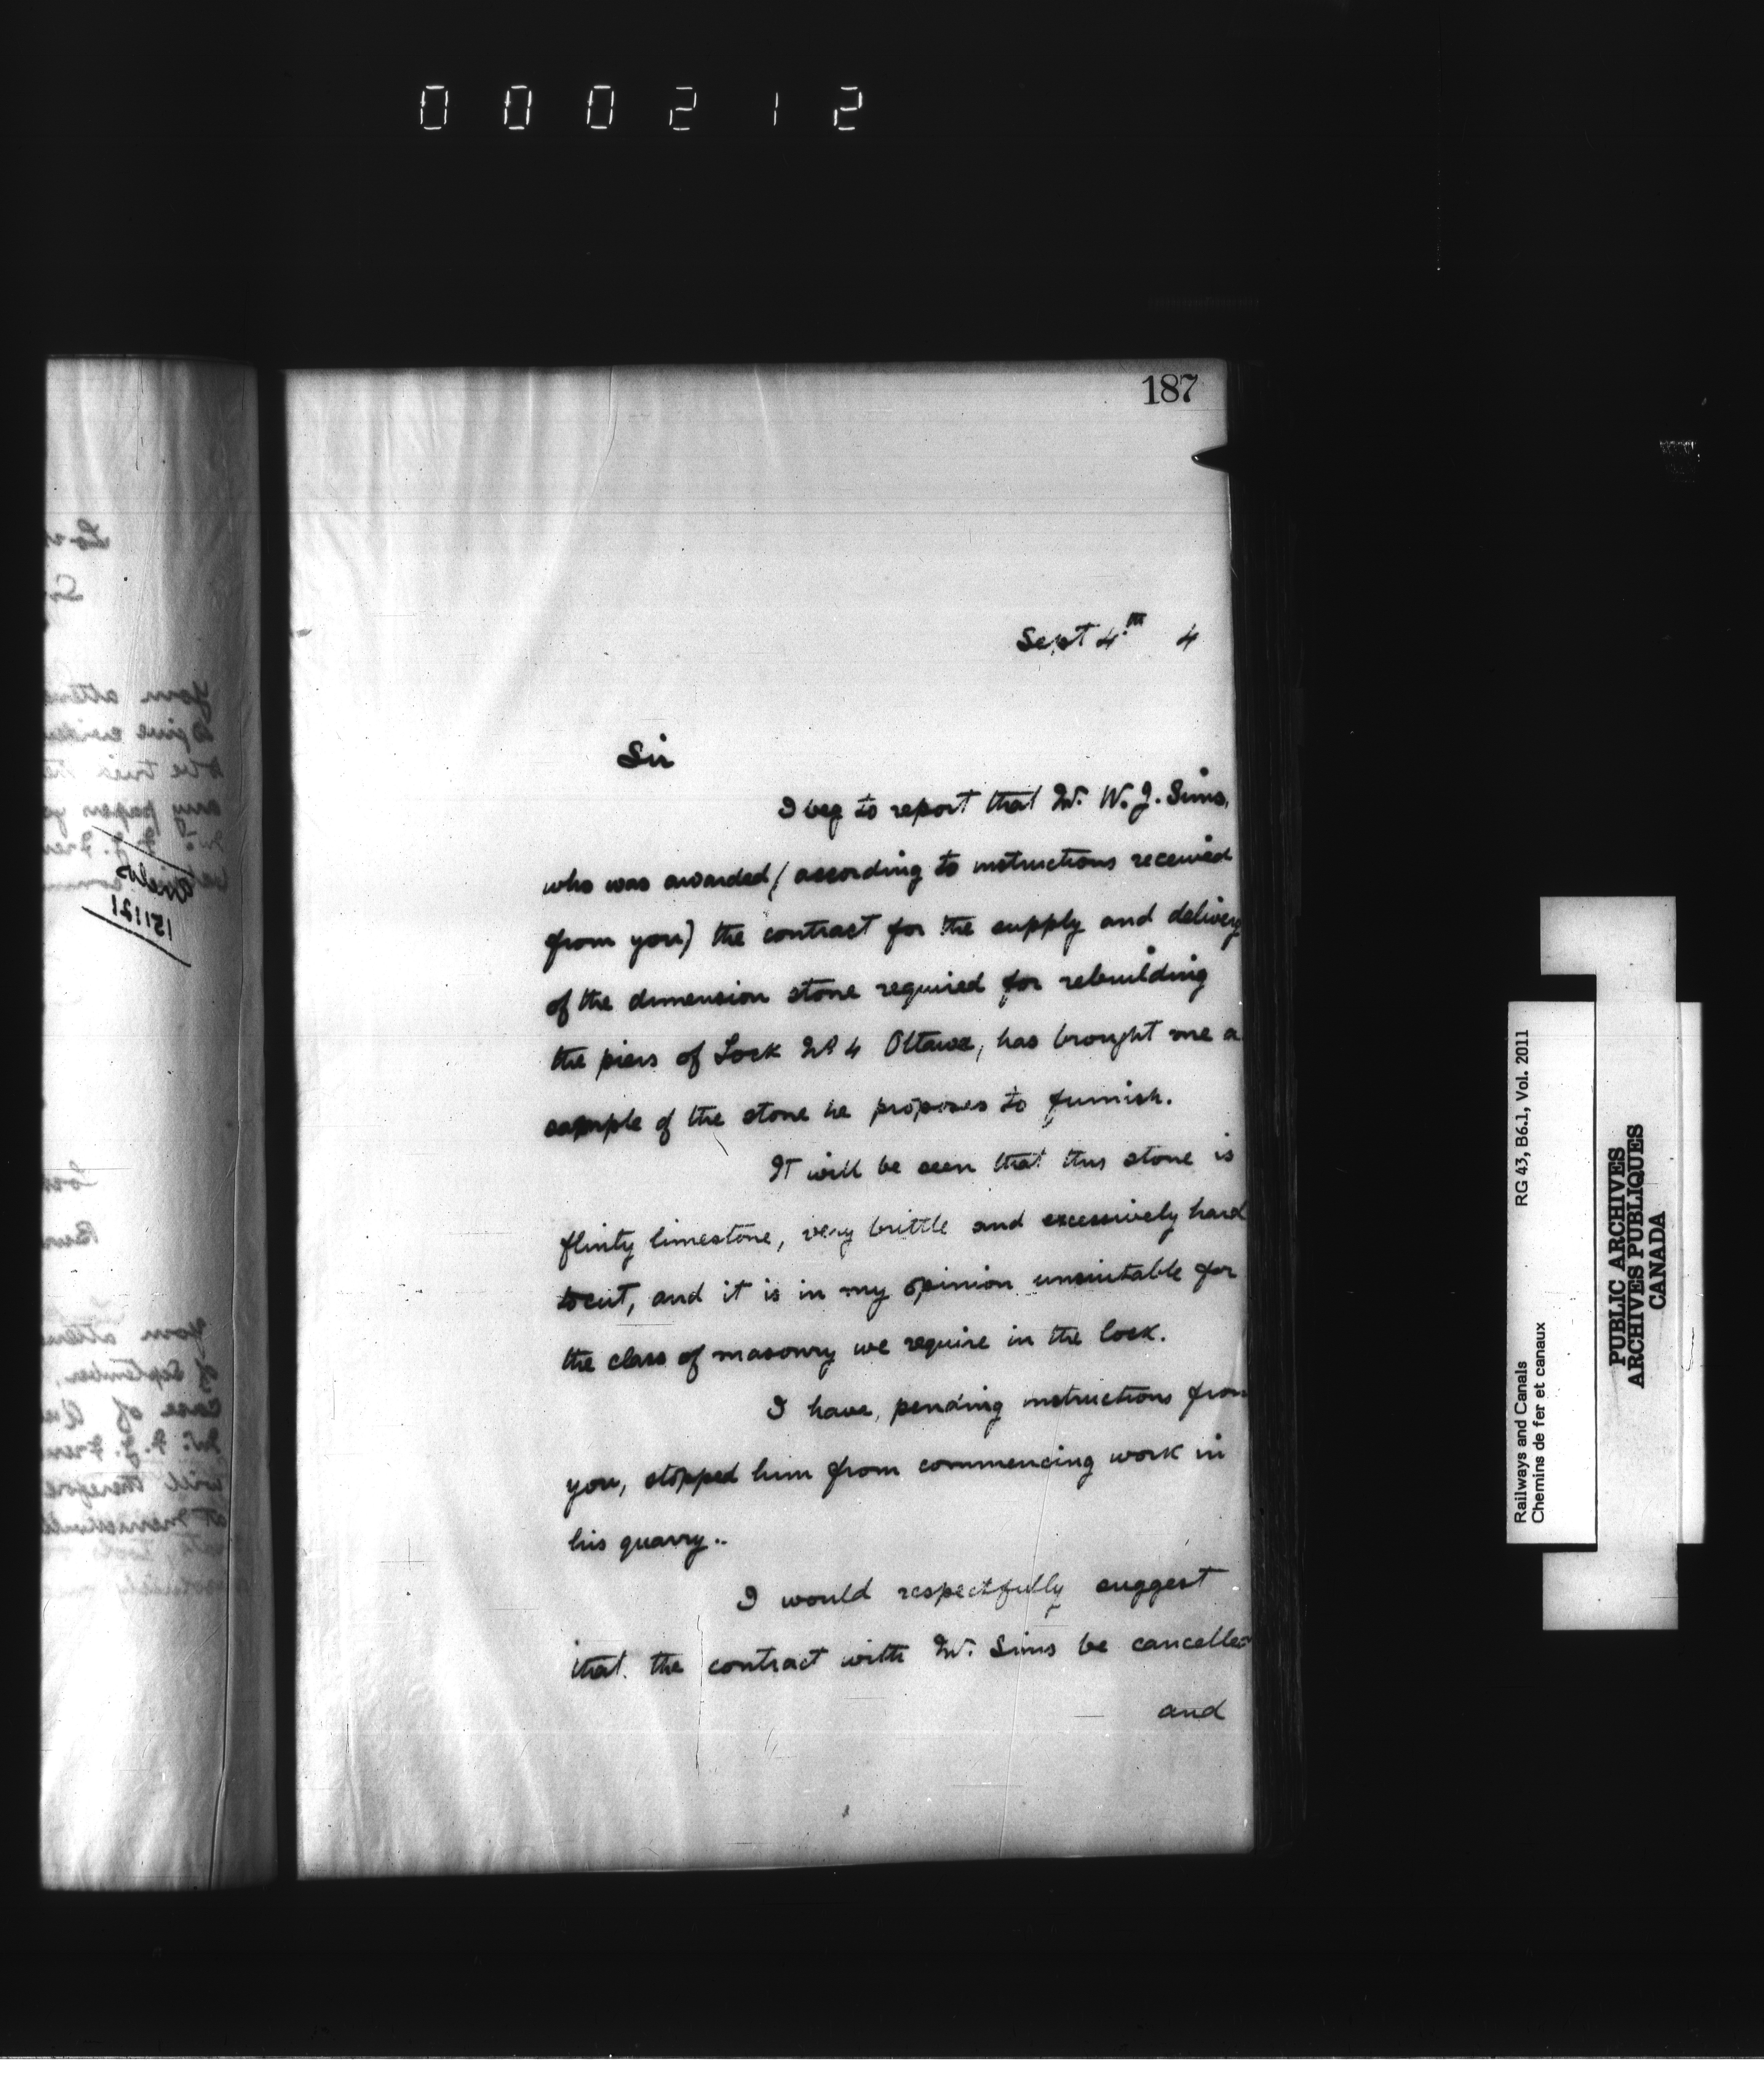 000212
187
Sept 4th 4
Sir
I beg to report that Mr. W. J. Sims,
who was awarded (according to instructions received
from you) the contract for the supply and delivery
of the dimension stone required for rebuilding
the piers of Lock No 4 Ottawa, has brought me a
sample of the stone he proposes to furnish.
It will be seen that this stone is
flinty limestone, very brittle and excessively hard
to cut, and it is in my opinion unsuitable for
the class of masonry we require in the lock.
I have, pending instructions from
you, stopped him from commencing work in
his quarry..
I would respectfully suggest
that the contract with Mr. Sims be cancelled
and
Railways and Canals RG 43, B6.1, Vol. 2011
Chemins de fer et canaux
PUBLIC ARCHIVES
ARCHIVES PUBLIQUES
CANADA